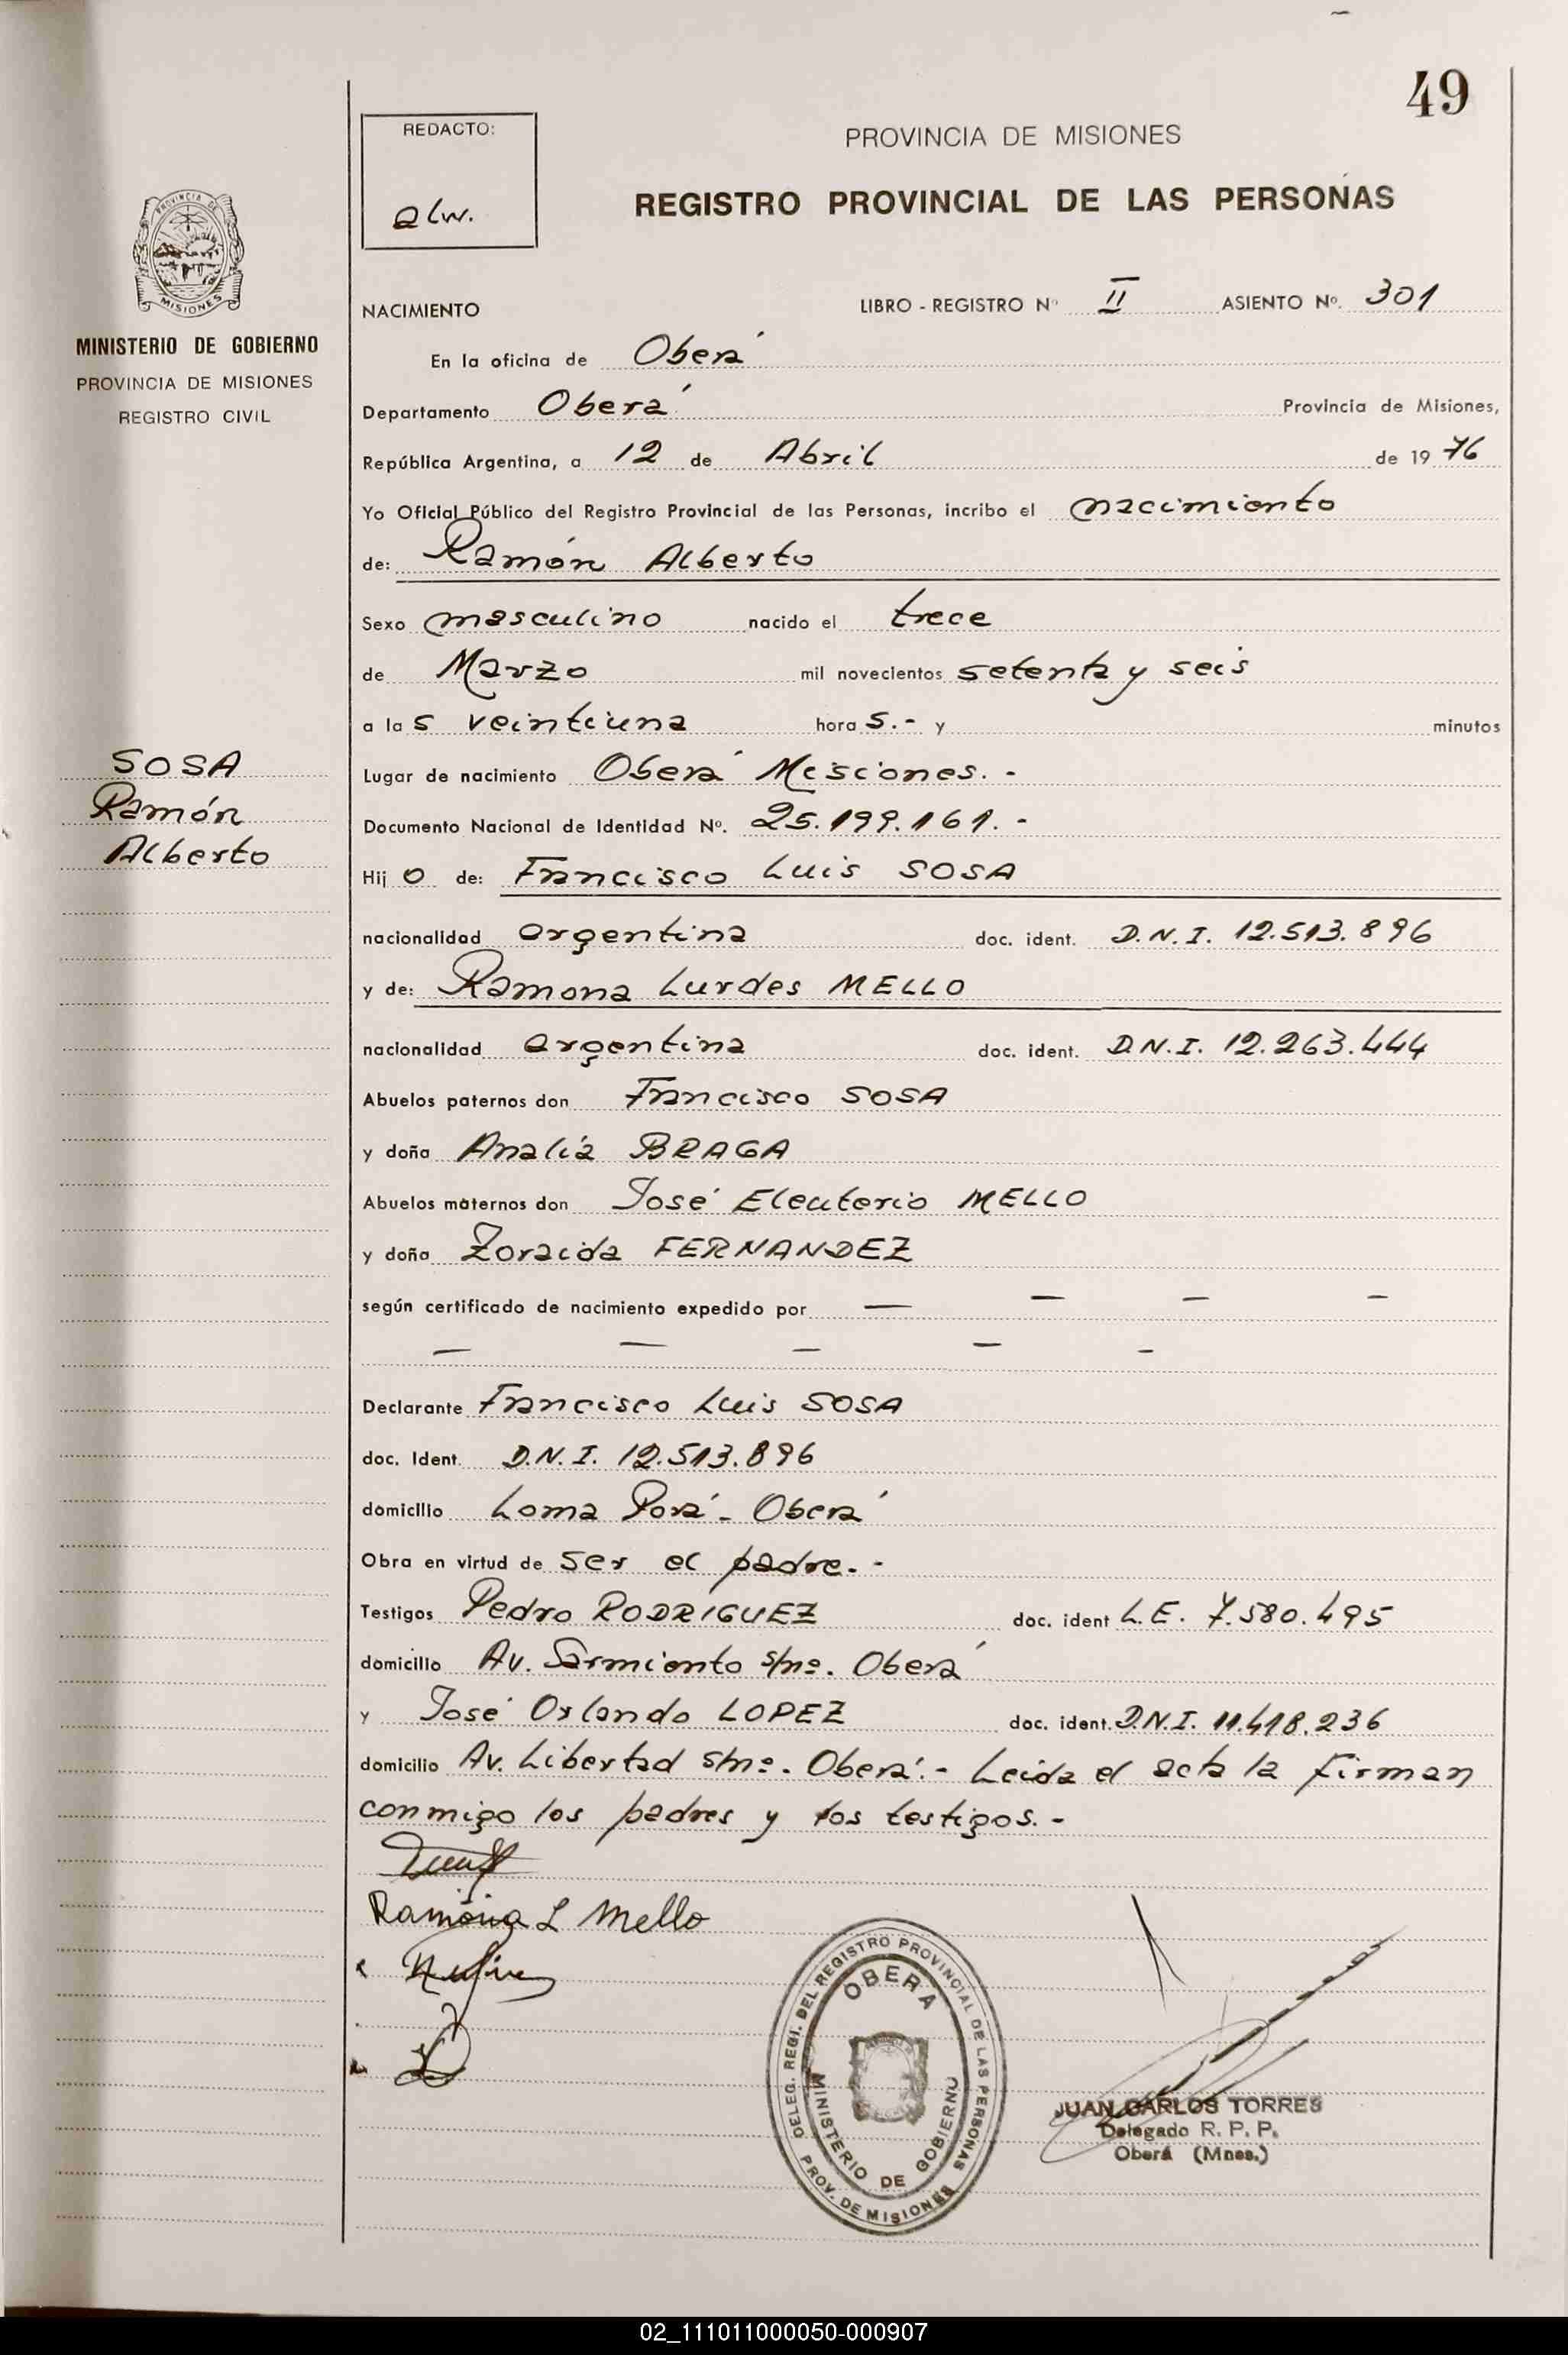 49
REDACTO:
alw.
PROVINCIA DE MISIONES
REGISTRO PROVINCIAL DE LAS PERSONAS
PROVINCIA DE
MISIONES
MINISTERIO DE GOBIERNO
PROVINCIA DE MISIONES
REGISTRO CIVIL
NACIMIENTO LIBRO - REGISTRO Nº II ASIENTO Nº. 301
En la oficina de Oberá
Departamento Oberá Provincia de Misiones,
República Argentina, a 12 de Abril de 19 76
Yo Oficial Público del Registro Provincial de las Personas, incribo el nacimiento
de: Ramón Alberto
Sexo masculino nacido el trece
de Marzo mil novecientos setenta y seis
a la s veintiuna hora s.- y minutos
SOSA
Ramón
Alberto
Lugar de nacimiento Oberá Misiones.-
Documento Nacional de Identidad Nº. 25.199.161.-
Hij o de: Francisco Luis SOSA
nacionalidad argentina doc. ident. D.N.I. 12.513.896
y de: Ramona Lurdes MELLO
nacionalidad argentina doc. ident. D.N.I. 12.263.444
Abuelos paternos don Francisco SOSA
y doña Analía BRAGA
Abuelos maternos don José Eleuterio MELLO
y doña Zoraida FERNANDEZ
según certificado de nacimiento expedido por — — — —
— — — — —
Declarante Francisco Luis SOSA
doc. Ident. D.N.I. 12.513.896
domicilio Loma Porá - Oberá
Obra en virtud de ser el padre.-
Testigos Pedro RODRIGUEZ doc. ident L.E. 7.580.495
domicilio Av. Sarmiento s/nº. Oberá
y José Orlando LOPEZ doc. ident. D.N.I. 11.418.236
domicilio Av. Libertad s/nº. Oberá.- Leida el acta la firman
conmigo los padres y los testigos.-
Ramona L Mello
DELEG. REGI. DEL REGISTRO PROVINCIAL DE LAS PERSONAS
PROV. DE MISIONES
OBERA
MINISTERIO DE GOBIERNO
JUAN CARLOS TORRES
Delegado R. P. P.
Oberá (Mnes.)
02_111011000050-000907